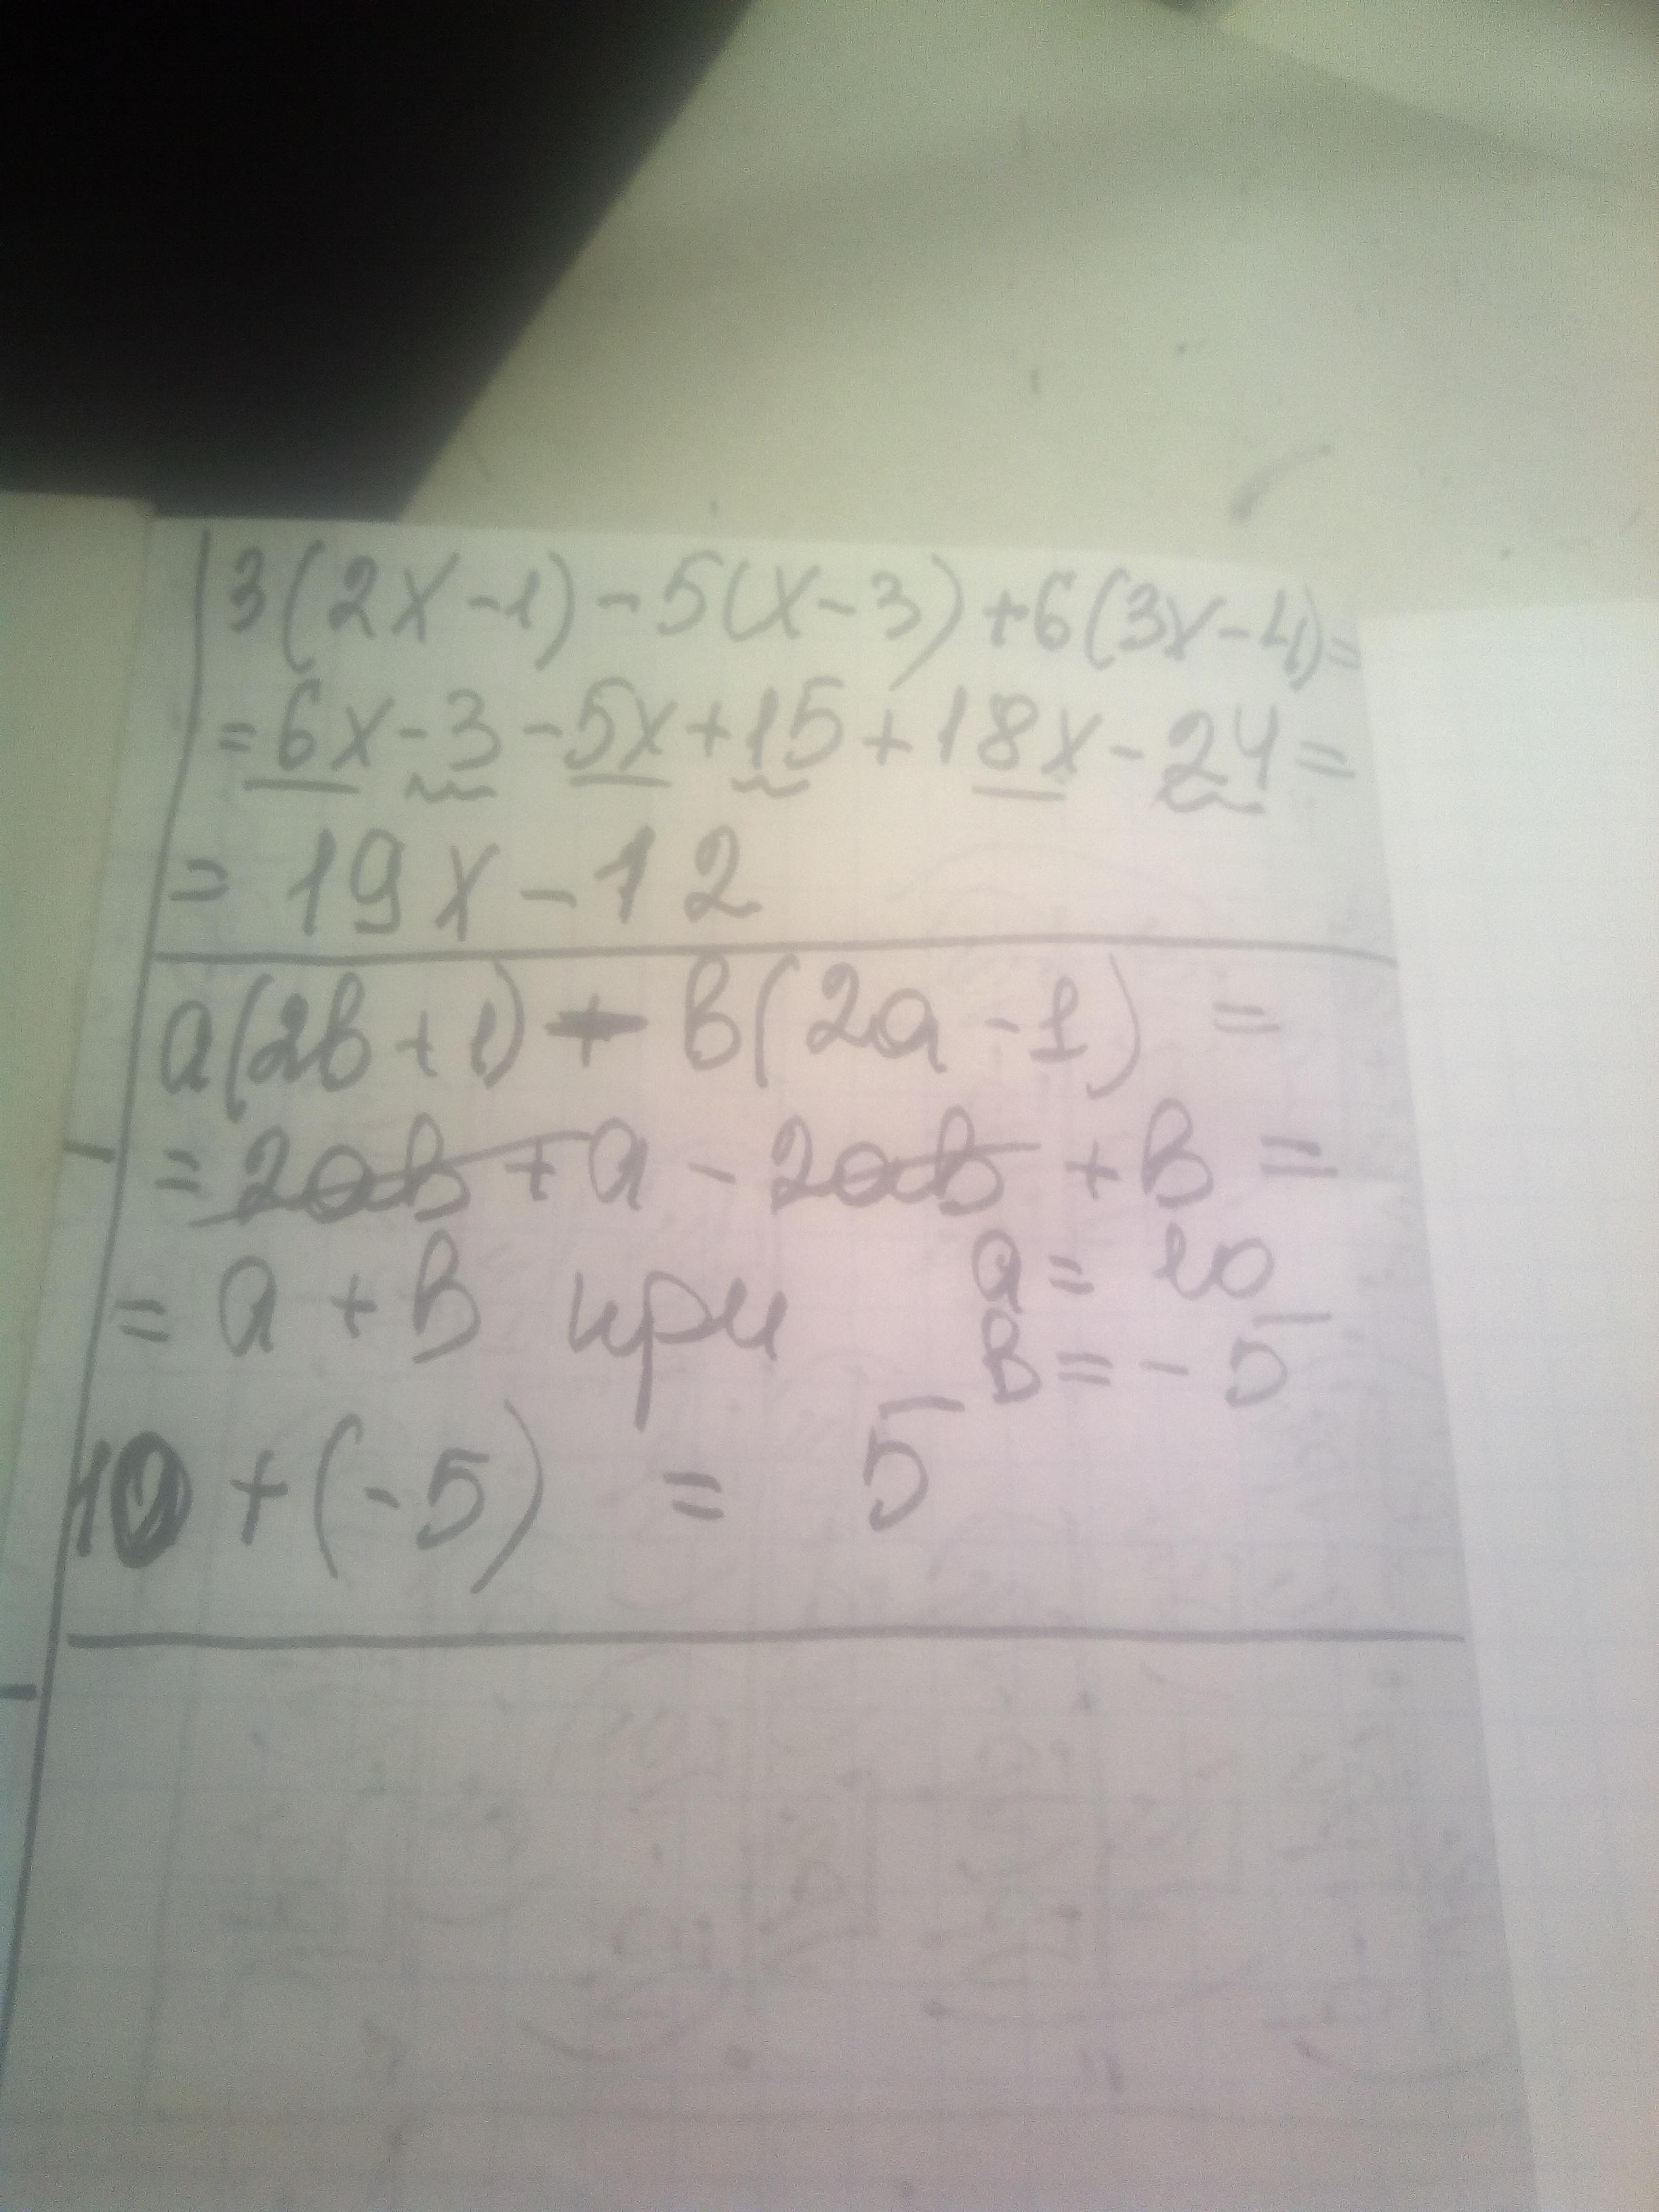 3(2x-1)-5(x-3)+6(3x-4)=
=6x-3-5x+15+18x-24=
=19x-12
a(2b+1)-b(2a-1)=
=2ab+a-2ab+b=
=a+b при a=10
b=-5
10+(-5)=5